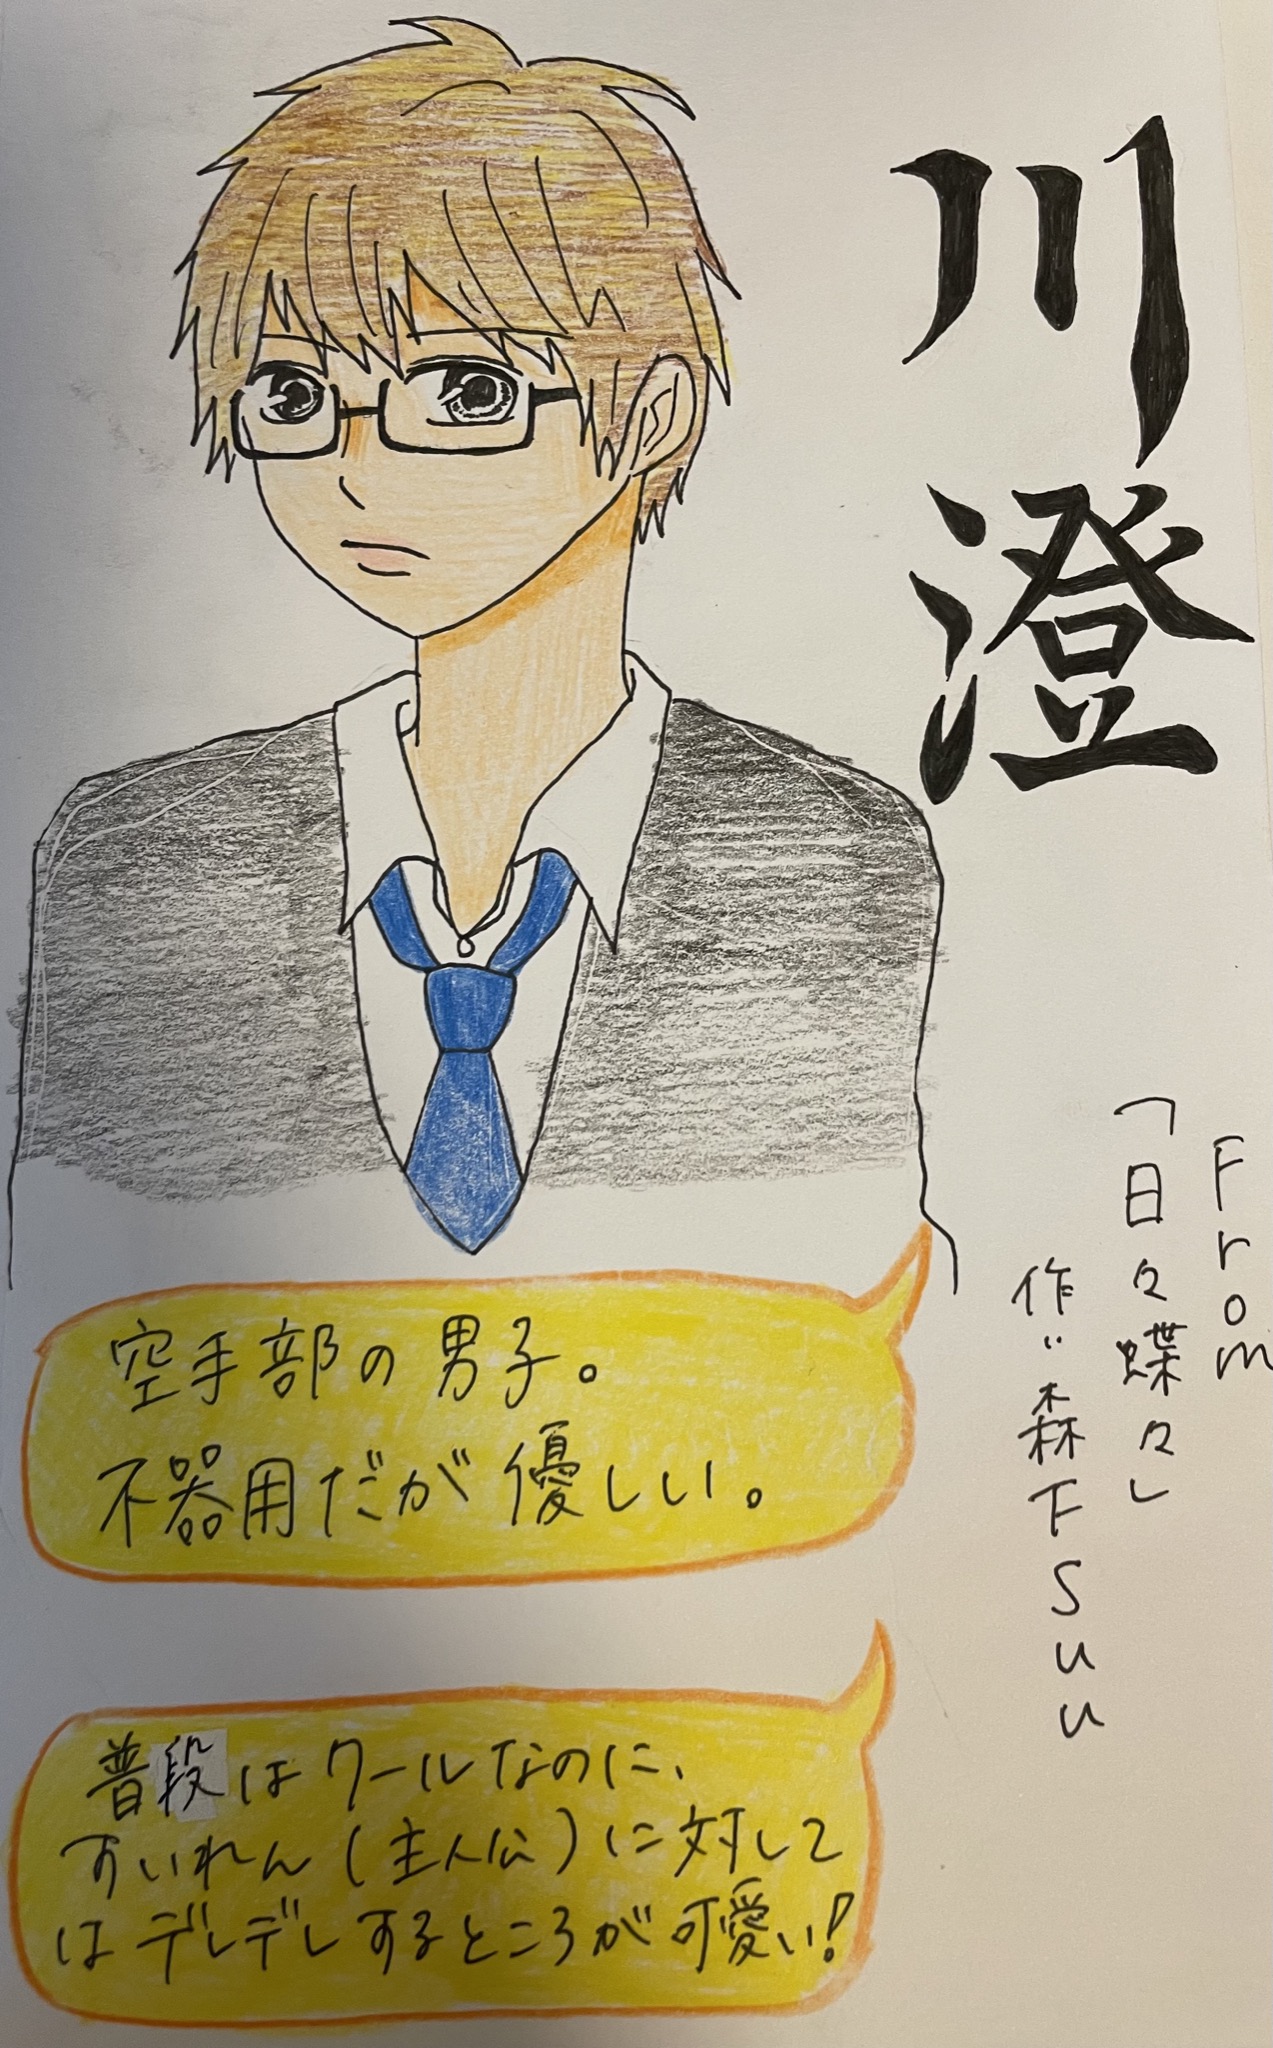 川澄
From
「日々蝶々」
作：森下suu
空手部の男子。
不器用だが優しい。
普段はクールなのに、
すいれん(主人公)に対して
はデレデレするところが可愛い！